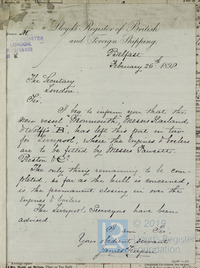 Lloyd's Register of British
and Foreign Shipping.
Belfast
February 26th 1890
The Secretary
London.
Sir,
I beg to inform you that the
new vessel Messrs Harland
& Wolff's has left this port in tow
for Liverpool, where the engines & boilers
are to be fitted by Messrs
& Co.
The only thing remaining to be com-
pleted as far as the hull is concerned,
is the permanent closing in over the
engines & boilers
The Liverpool Surveyors have been
advised.
I am Sir
Your obedient servant
© 2019